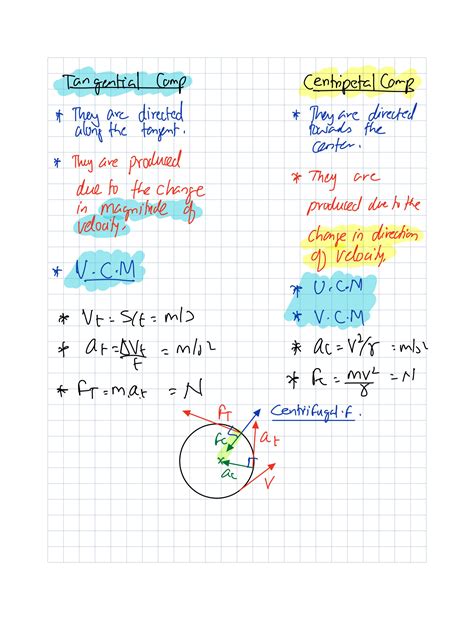 Tangential Comp
* They are directed
along the tangent.
* They are produced
due to the change
in magnitude of
velocity.
* V.C.M
* Vt = S/t = m/s
* at = ΔVt/t = m/s²
* FT = m.at = N
Centripetal Comp
* They are directed
towards the
center.
* They are
produced due to the
change in direction
of velocity
* U.C.M
* V.C.M
* ac = V²/r = m/s²
* Fc = mv²/r = N
FT
Centrifugal.F.
Fc
at
ac
V